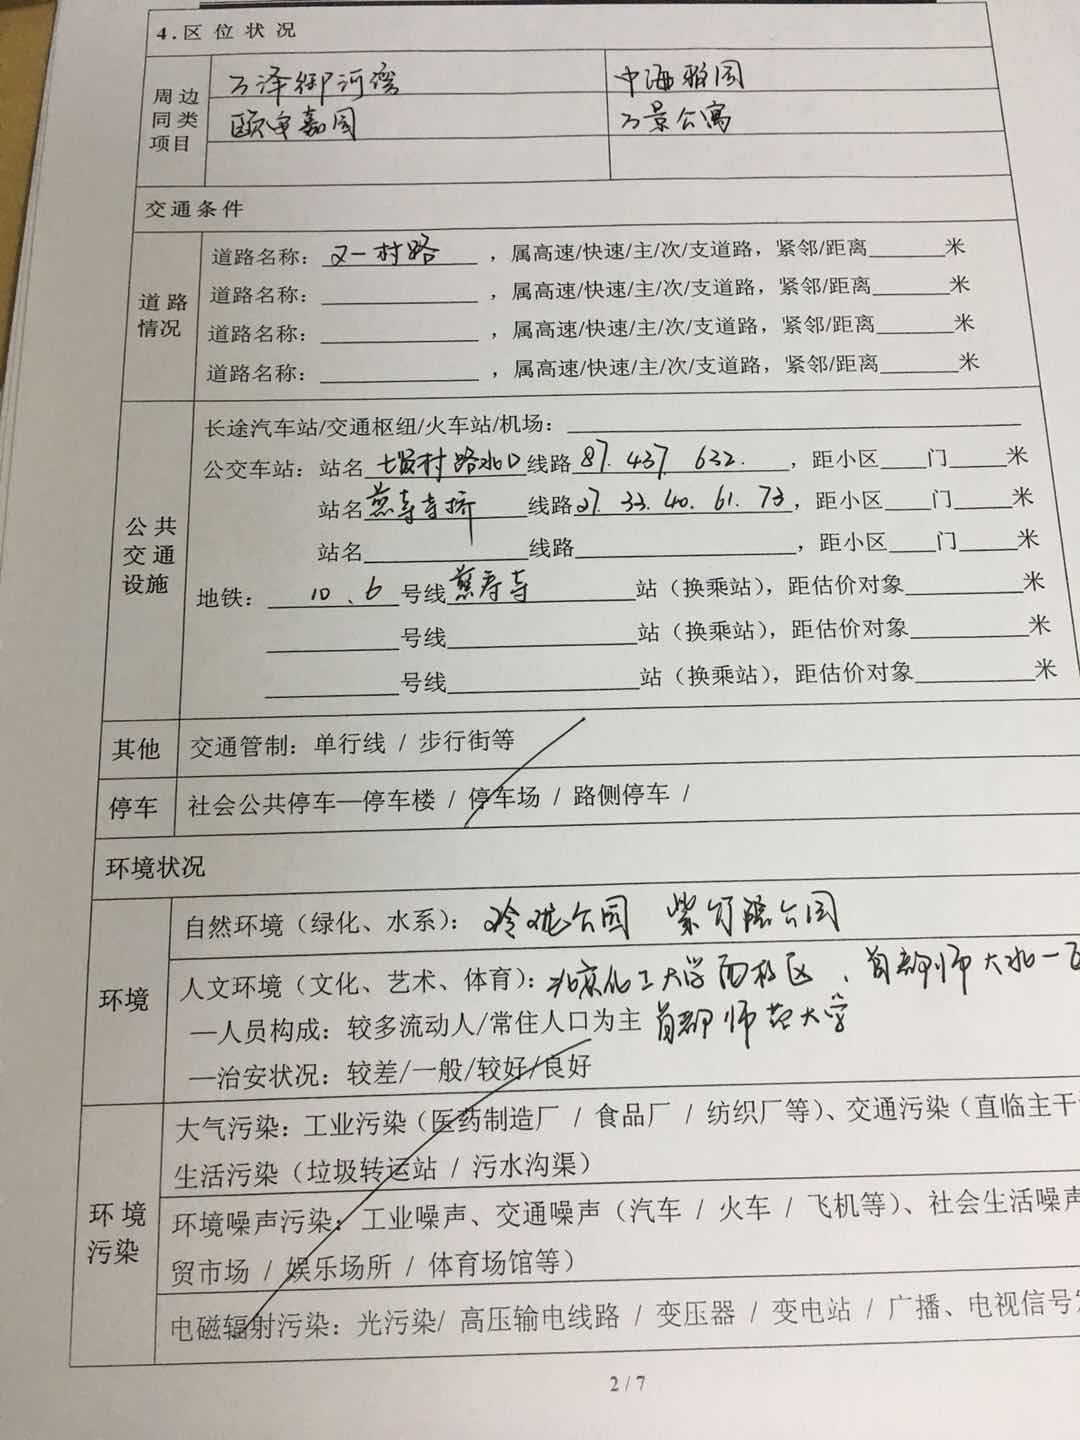 4.区 位 状 况
周边同类项目
万泽御河湾 中海雅园
欧郡嘉园 万景公寓
交通条件
道路情况
道路名称：又一村路，属高速/快速/主/次/支道路，紧邻/距离______米
道路名称：____________，属高速/快速/主/次/支道路，紧邻/距离______米
道路名称：____________，属高速/快速/主/次/支道路，紧邻/距离______米
道路名称：____________，属高速/快速/主/次/支道路，紧邻/距离______米
公共交通设施
长途汽车站/交通枢纽/火车站/机场：____________
公交车站：站名 村路北口 线路 87. 437. 632.，距小区____门_____米
站名 慈寿寺桥 线路 27. 33. 40. 61. 73，距小区____门_____米
站名____________线路____________，距小区____门_____米
地铁：10、6号线慈寿寺站（换乘站），距估价对象__________米
__________号线____________站（换乘站），距估价对象__________米
__________号线____________站（换乘站），距估价对象__________米
其他 交通管制：单行线 / 步行街等
停车 社会公共停车—停车楼 / 停车场 / 路侧停车 /
环境状况
环境
自然环境（绿化、水系）：玲珑公园 紫竹院公园
人文环境（文化、艺术、体育）：北京化工大学西校区、首都师大北一
—人员构成：较多流动人/常住人口为主 首都师范大学
—治安状况：较差/一般/较好/良好
环境污染
大气污染：工业污染（医药制造厂 / 食品厂 / 纺织厂等）、交通污染（直临主干
生活污染（垃圾转运站 / 污水沟渠）
环境噪声污染：工业噪声、交通噪声（汽车 / 火车 / 飞机等）、社会生活噪声
贸市场 / 娱乐场所 / 体育场馆等）
电磁辐射污染：光污染/ 高压输电线路 / 变压器 / 变电站 / 广播、电视信号
2 / 7